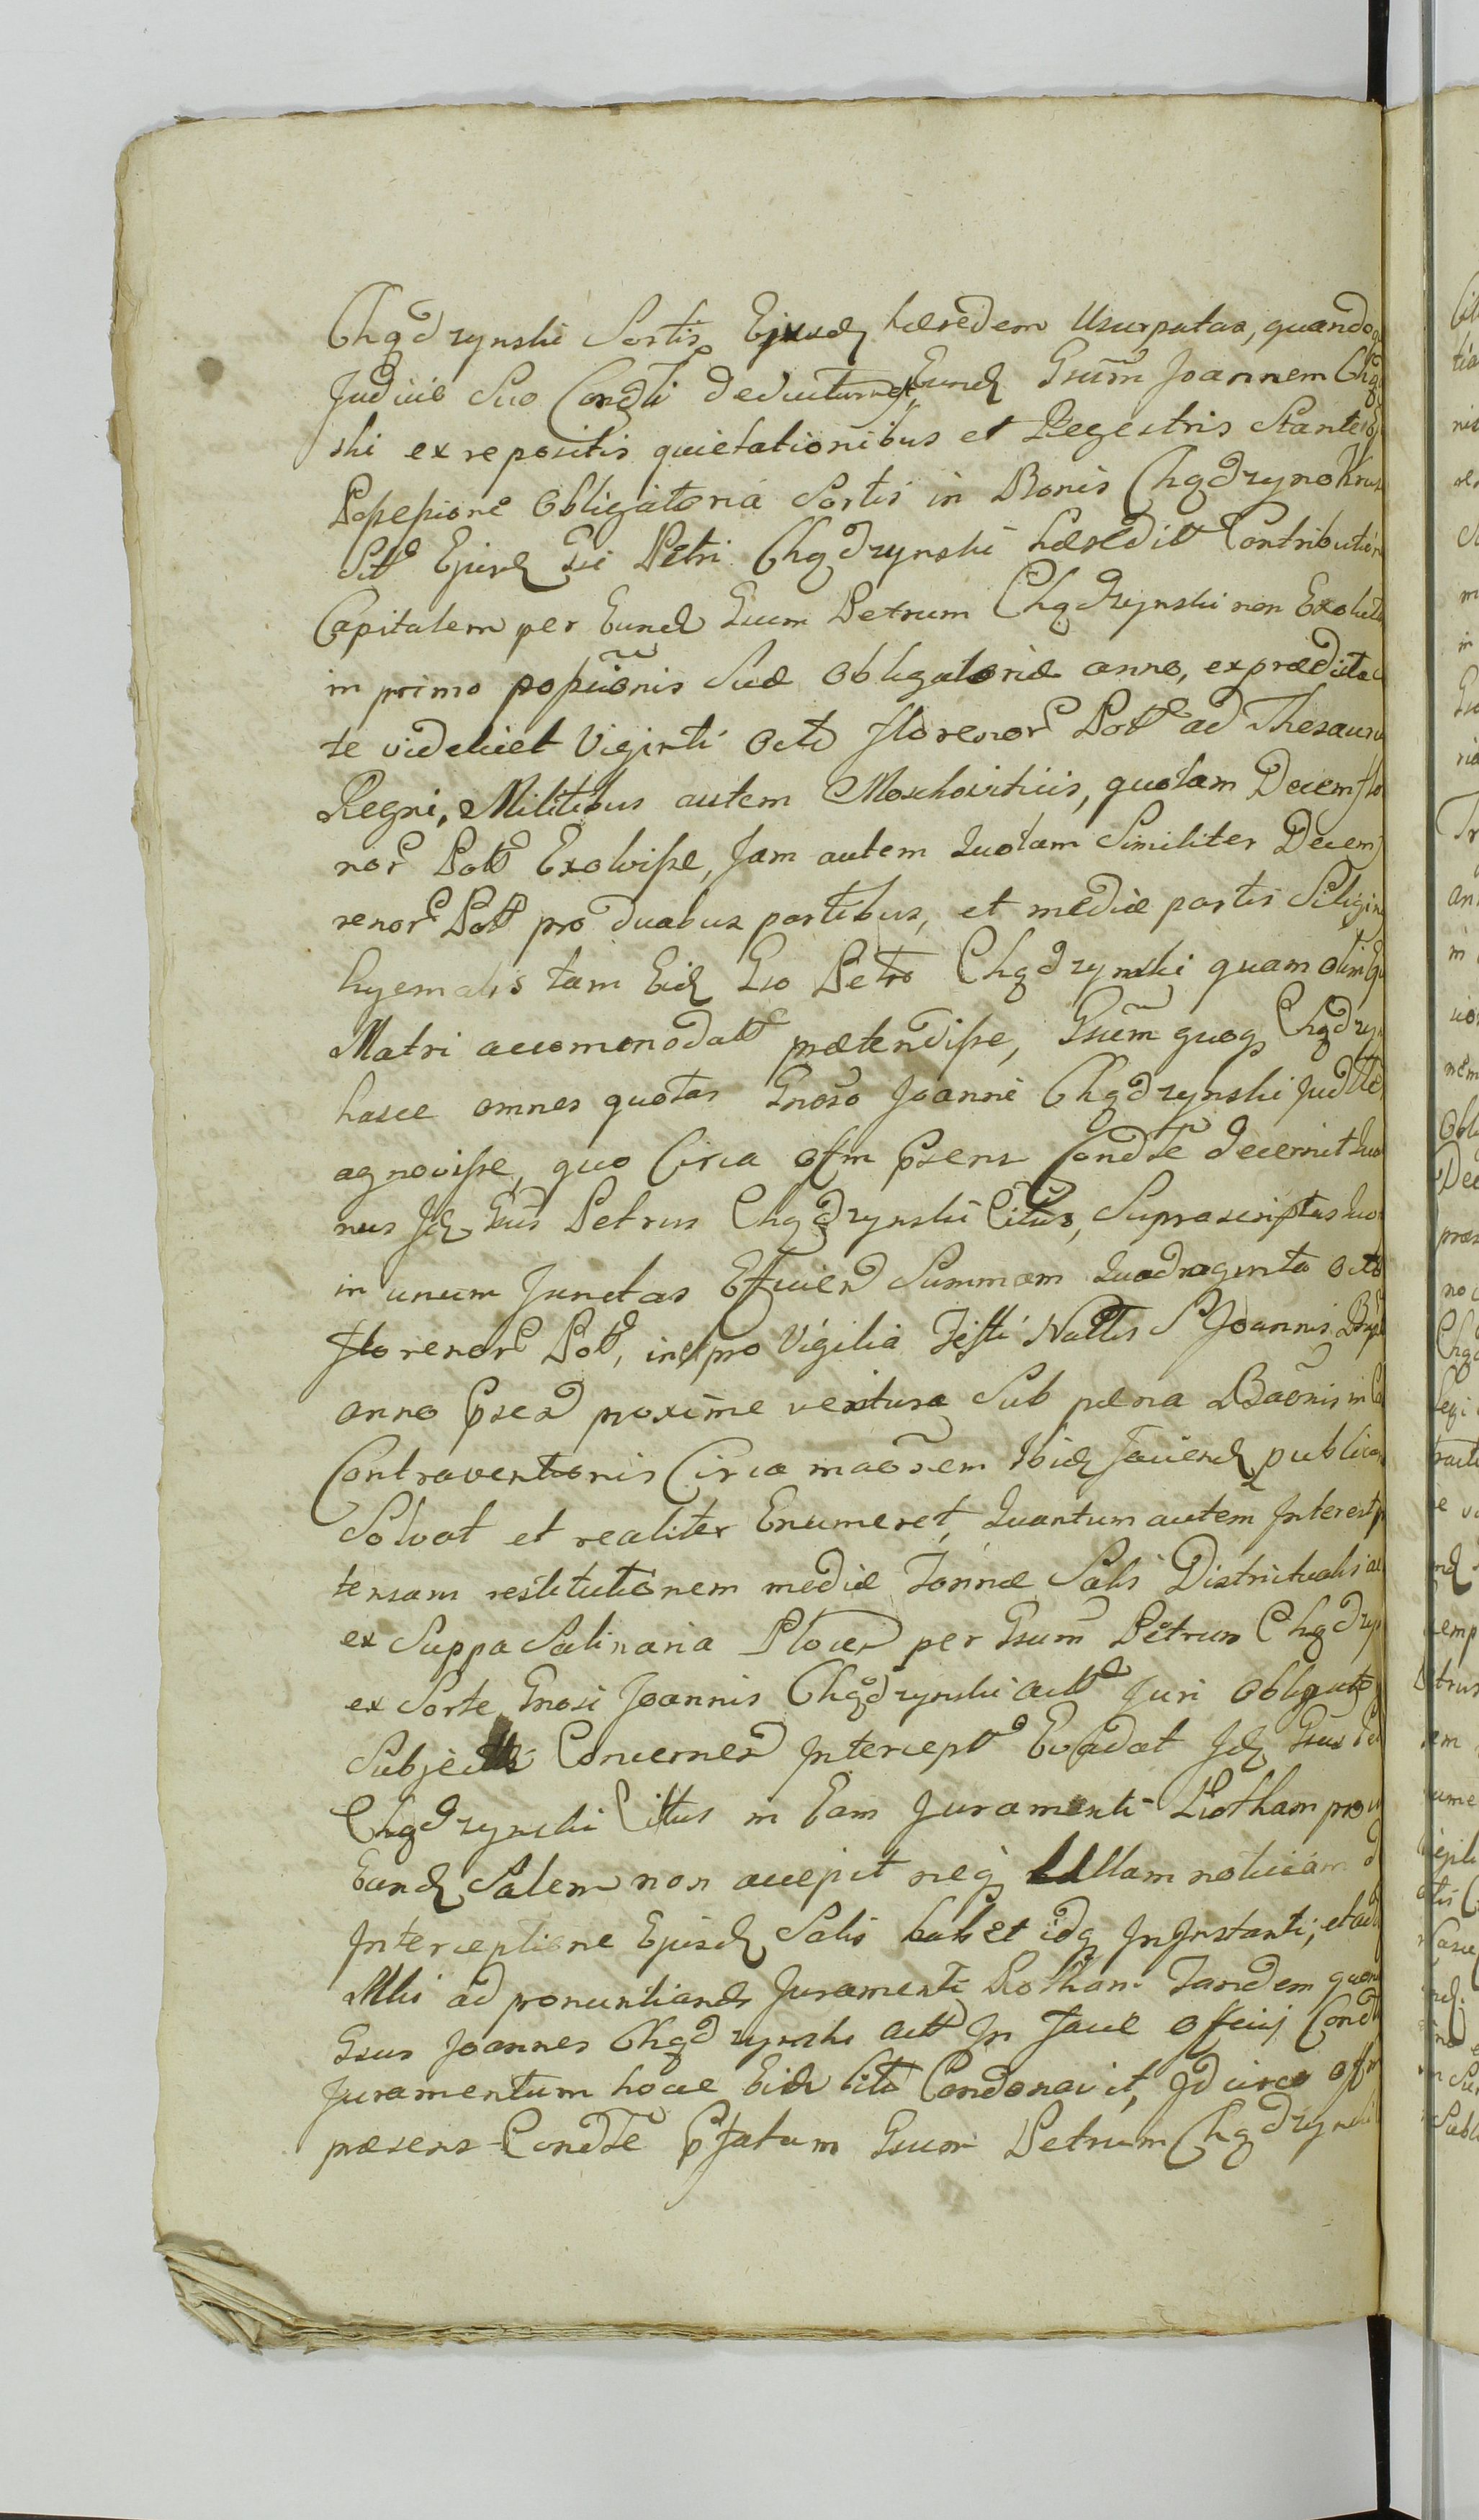 Chądzynski Sortis Ejusd hæredem Usurpatas, quandoq
Judicio Suo Condli deductum est, Eund Gsum Joannem Chą
ski ex repositis quietationibus et Regestris Stante
Possessione Obligatoria Sortis in Bonis Chądzyno Krus
Sitt Ejusd Gsi Petri Chądzynski hæredit Contribution
Capitalem per Eund Gsum Petrum Chądzynski non Exolut
in primo possionis Suæ Obligatoriæ anno, ex prædicta
te videlicet Viginti Octo florenor Poll ad Thesauru
Regni, Militibus autem Moschoviticis, quotam Decem flo
nor Poll Exolvisse, Jam autem Quotam Similiter Decem
renor Poll pro duabus partibus, et mediæ partis Siligin
hyemalis tam Eid Gso Petro Chądzynski quam olim Eju
Matri accomonodatt prætendisse, Gsum quoq Chądzyn
hasce omnes quotas Gnoso Joanni Chądzynski Judtte
agnovisse, quo Circa offm psens Condle decernit quo
nus Jd Gsus Petrus Chądzynski Cittus, Suprascriptas quo
in unum Junctas Efficien Summam Quadraginta Octo
florenor Poll, in et pro Vigilia Festi Nattis S Joannis Bap
anno psen proxime ventura Sub pæna Baonis in
Contraventionis Circa maorem Ibid faciend publican
Solvat et realiter Enumeret, Quantum autem Interest p
tensam restitutionem mediæ Tonnæ Salis Districtualis
ex Suppa Salinaria Plocen per Gsum Petrum Chądzyn
ex Sorte Gnosi Joannis Chądzynski actt Juri Obligato
Subjectte Concernen Intercept Evadat Jd Gsus Pet
Chądzynski Cittus in Eam Juramenti Rotham pro
Eund Salem non accepit neq Ullam noticiam d
Interceptione Ejusd Salis habet idq In Instanti, et ad
Mli ad pronuntiand Juramenti Rotham Tandem quon
Gsus Joannes Chądzynski actt In facie Officij Condl
Juramentum hocce Eid Citto Condonavit, Id circo Offm
præsens Condle pfatum Gsum Petrum Chądzynski